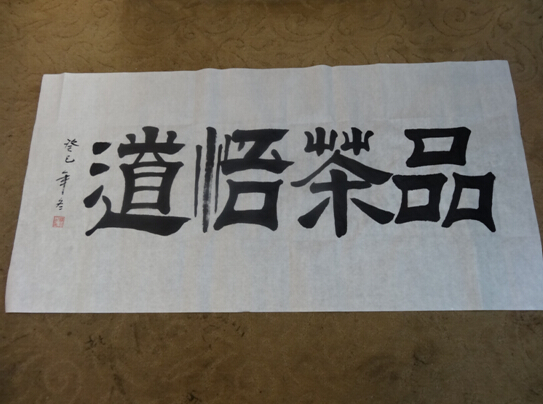 品茶悟道
癸巳年